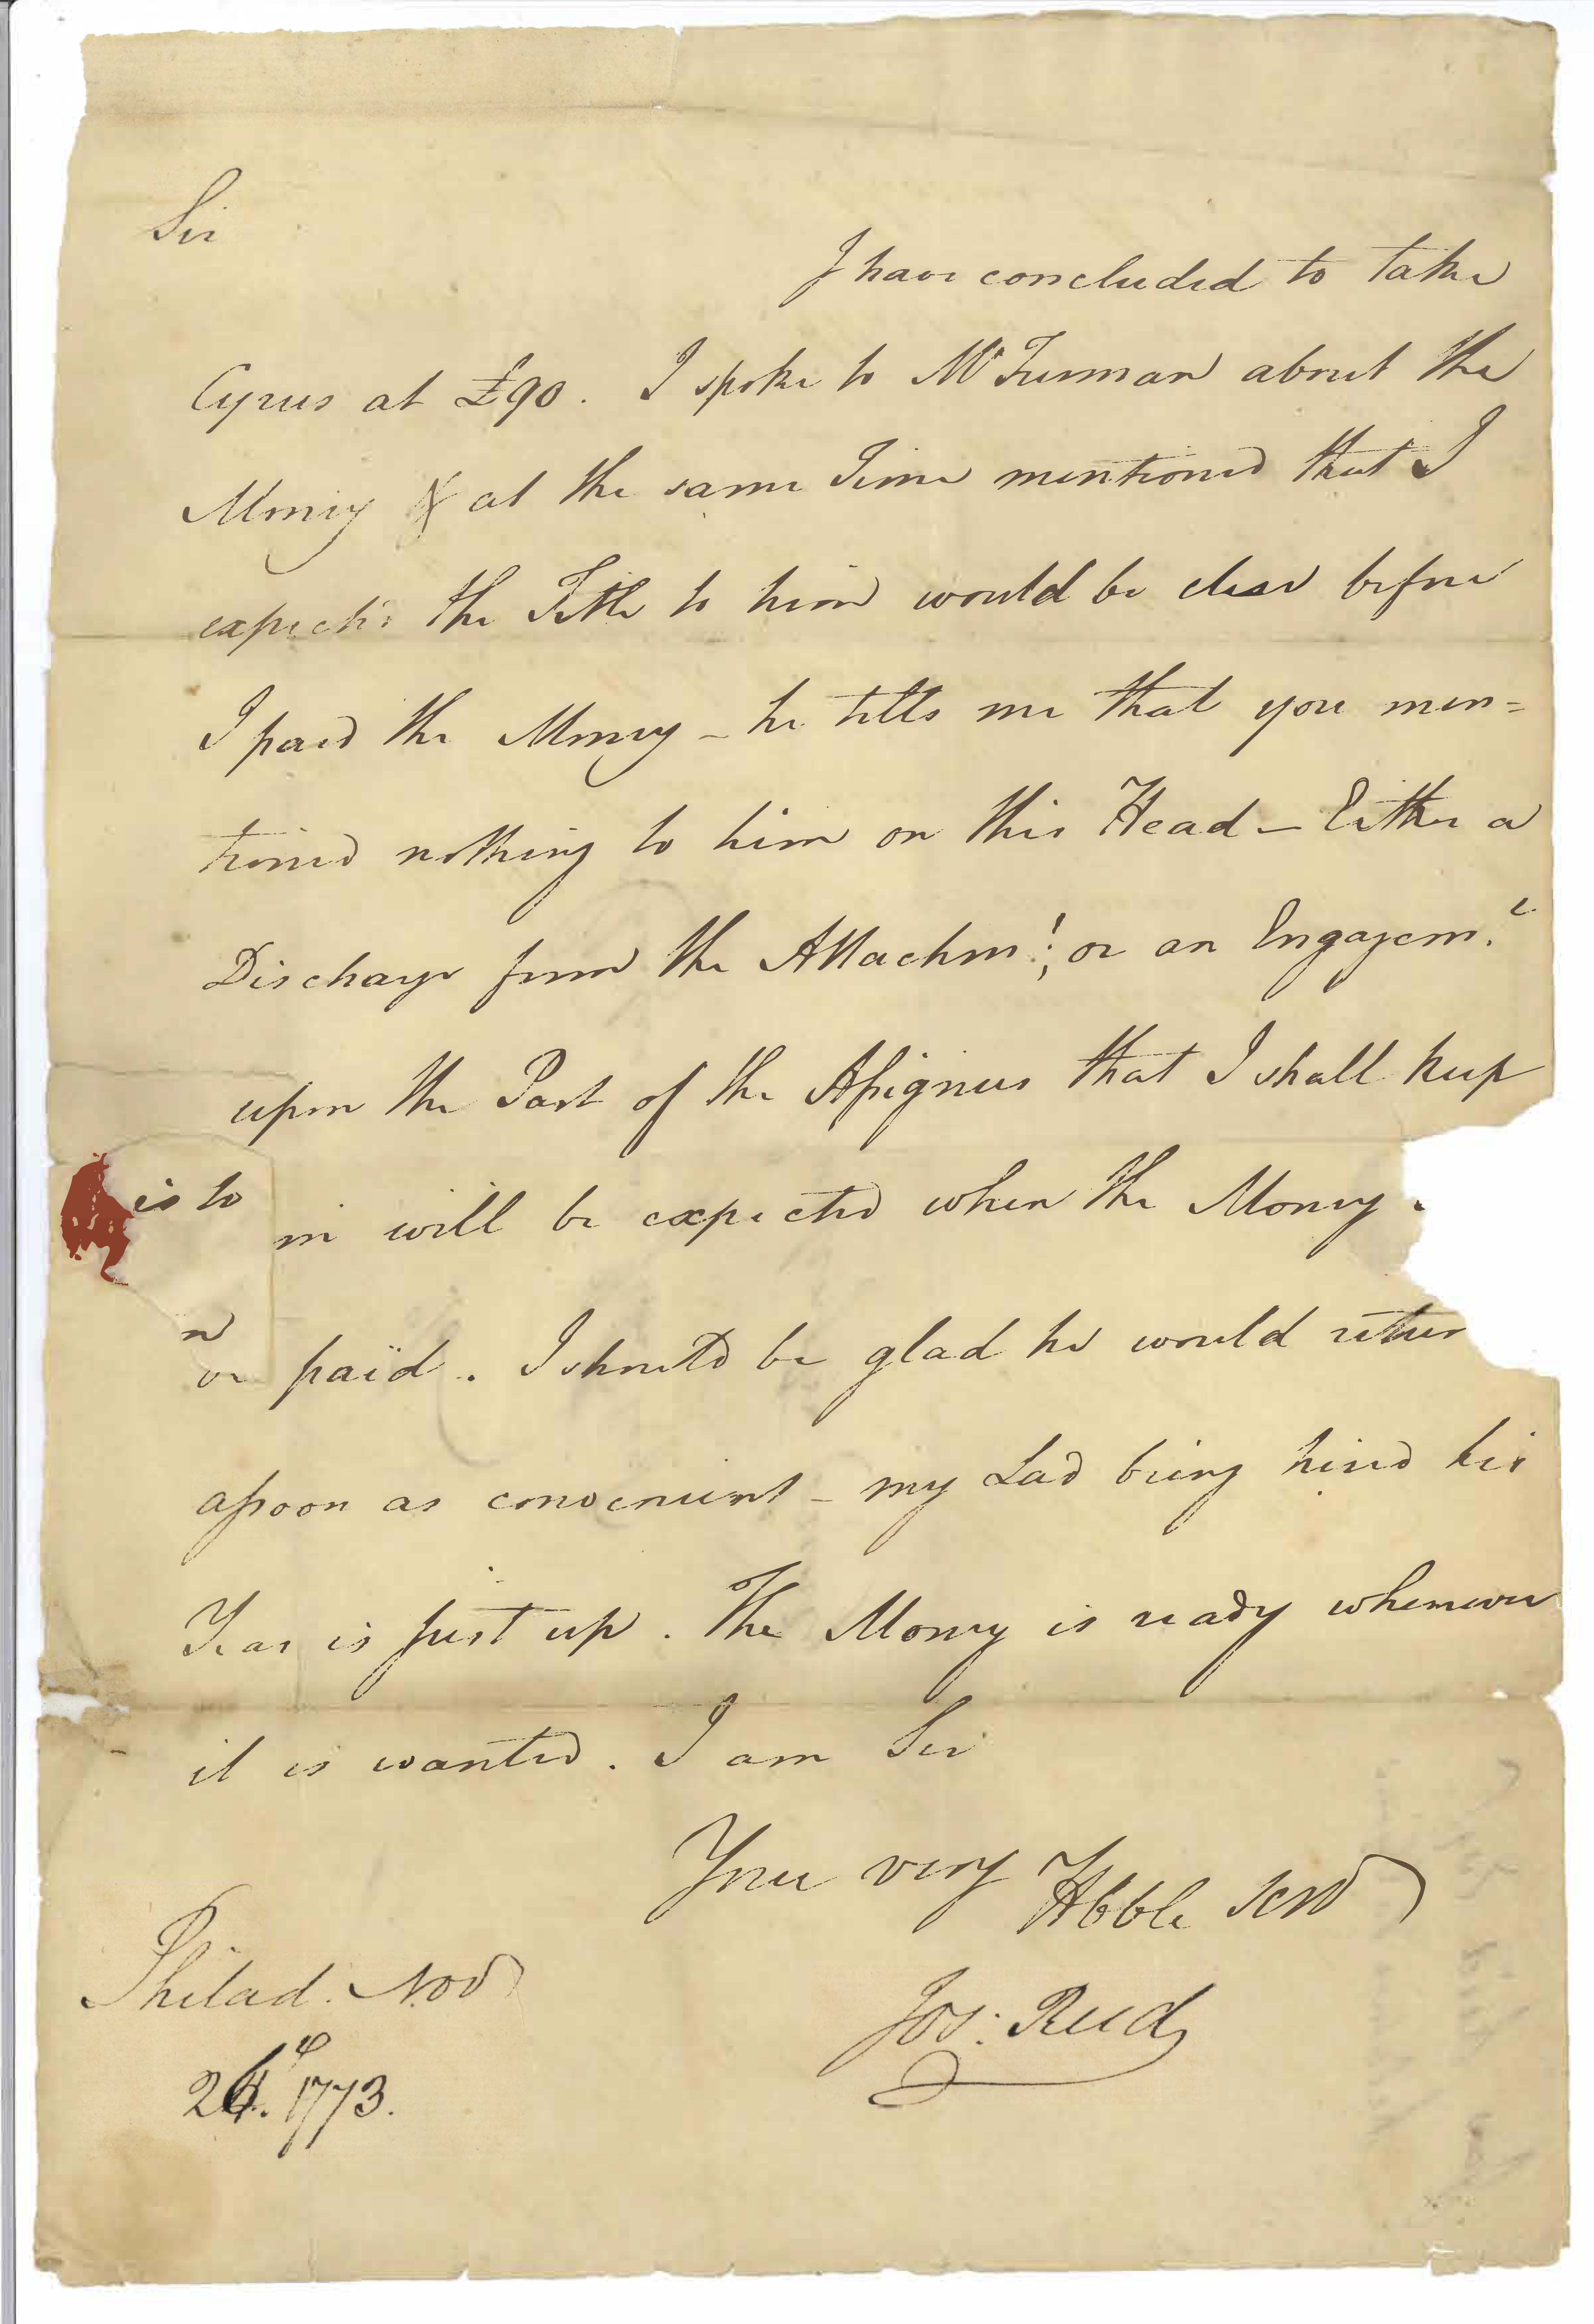 Sir
I have concluded to take
Cyrus at £90. I spoke to Mr Furman about the
Money & at the same Time mentioned that I
expected the Title to him would be clear before
I paid the Money – he tells me that you men=
tioned nothing to him on this Head – Either a
Discharge from the Attachmt; or an Engagemt
upon the Part of the Assignees that I shall keep
is to
him will be expected when the Money
n
be paid. I should be glad he would retur
assoon as convenient – my Lad being hired his
Year is just up. The Money is ready whenever
it is wanted. I am Sir
Your very Hbble Serv
Jos: Reed
Philad. Nov
26. 1773.